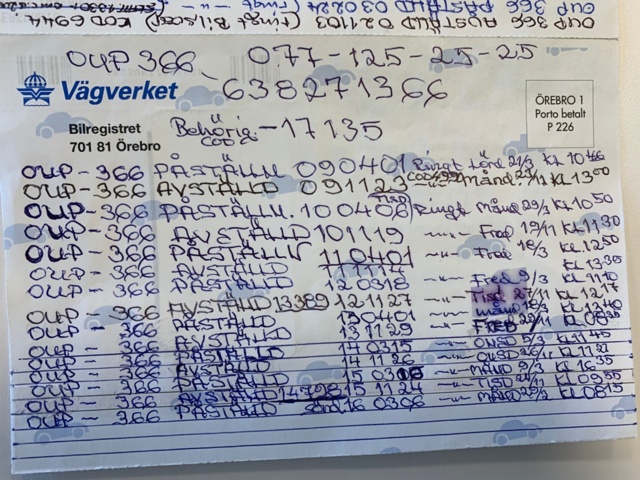 OUP 366 AVSTÄLLD 021103 (Ringt Bilreg) KOD 6944
OUP 366 PÅSTÄLLD 030224
OUP 366 077-125-25-25
Vägverket 638271366
ÖREBRO 1
Porto betalt
P 226
Bilregistret
701 81 Örebro
Behörig. COD -17135
OUP-366 PÅSTÄLLN 090401 Ringt lörd 21/3 KL 10 46
OUP-366 AVSTÄLLD 091123 -"- Månd. 23/11 KL 13 00
OUP-366 PÅSTÄLLN. 100406 Ringt Månd 29/3 KL 10 50
OUP-366 AVSTÄLLD 101119 -"- Fred 19/11 KL 11 30
OUP-366 PÅSTÄLLN 110401 -"- Fred 18/3 KL 12 50
OUP-366 AVSTÄLLD 13 35
OUP-366 PÅSTÄLLD 120318 -"- Fred 9/3 KL 11 10
OUP-366 AVSTÄLLD 13389 121127 -"- Tisd 27/11 KL 12 17
OUP-366 PÅSTÄLLD 130401 -"- Månd
OUP-366 AVSTÄLLD 131129 -"- FRED 22/11 KL
OUP-366 PÅSTÄLLD 140315 -"- ONSD 5/3 KL 11 45
OUP-366 AVSTÄLLD 141126 -"- ONSD 26/11 KL 11 21
OUP-366 PÅSTÄLLD 150318 -"- MÅND 9/3 KL 16 35
OUP-366 AVSTÄLLD 14798 151124 -"- TISD 24/11 KL 09 55
OUP-366 PÅSTÄLLD sönd 160306 -"- MÅND 29/2 KL 08 15